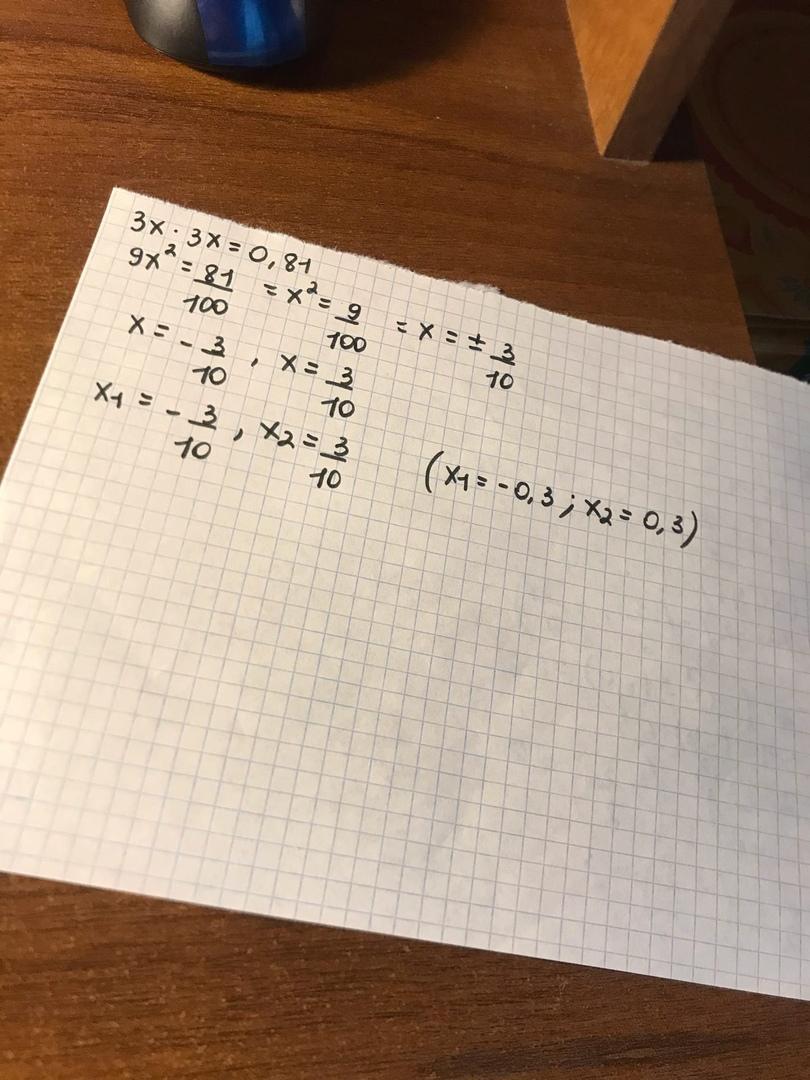 3x · 3x = 0,81
9x² = 81/100 = x² = 9/100 = x = ± 3/10
x = - 3/10 , x = 3/10
x₁ = - 3/10 , x₂ = 3/10 (x₁ = -0,3 ; x₂ = 0,3)